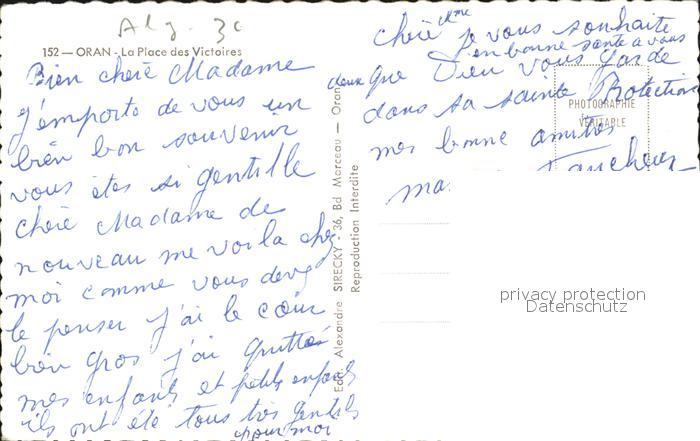 Alg. 30
152 — ORAN - La Place des Victoires
Bien chère Madame
J'emporte de vous un
bien bon souvenir
vous êtes si gentille
chère Madame de
nouveau me voila chez
moi comme vous devez
le penser j'ai le cœur
bien gros j'ai quittée
mes enfants et petits enfants
ils ont été tous très gentils
pour moi
Edit. Alexandre SIRECKY - 36, Bd Marceau - Oran
Reproduction Interdite
chère Mme je vous souhaite
en bonne santé a vous
deux que Dieu vous garde
dans sa sainte Protection
mes bonne amitiés
PHOTOGRAPHIE
VÉRITABLE
privacy protection
Datenschutz